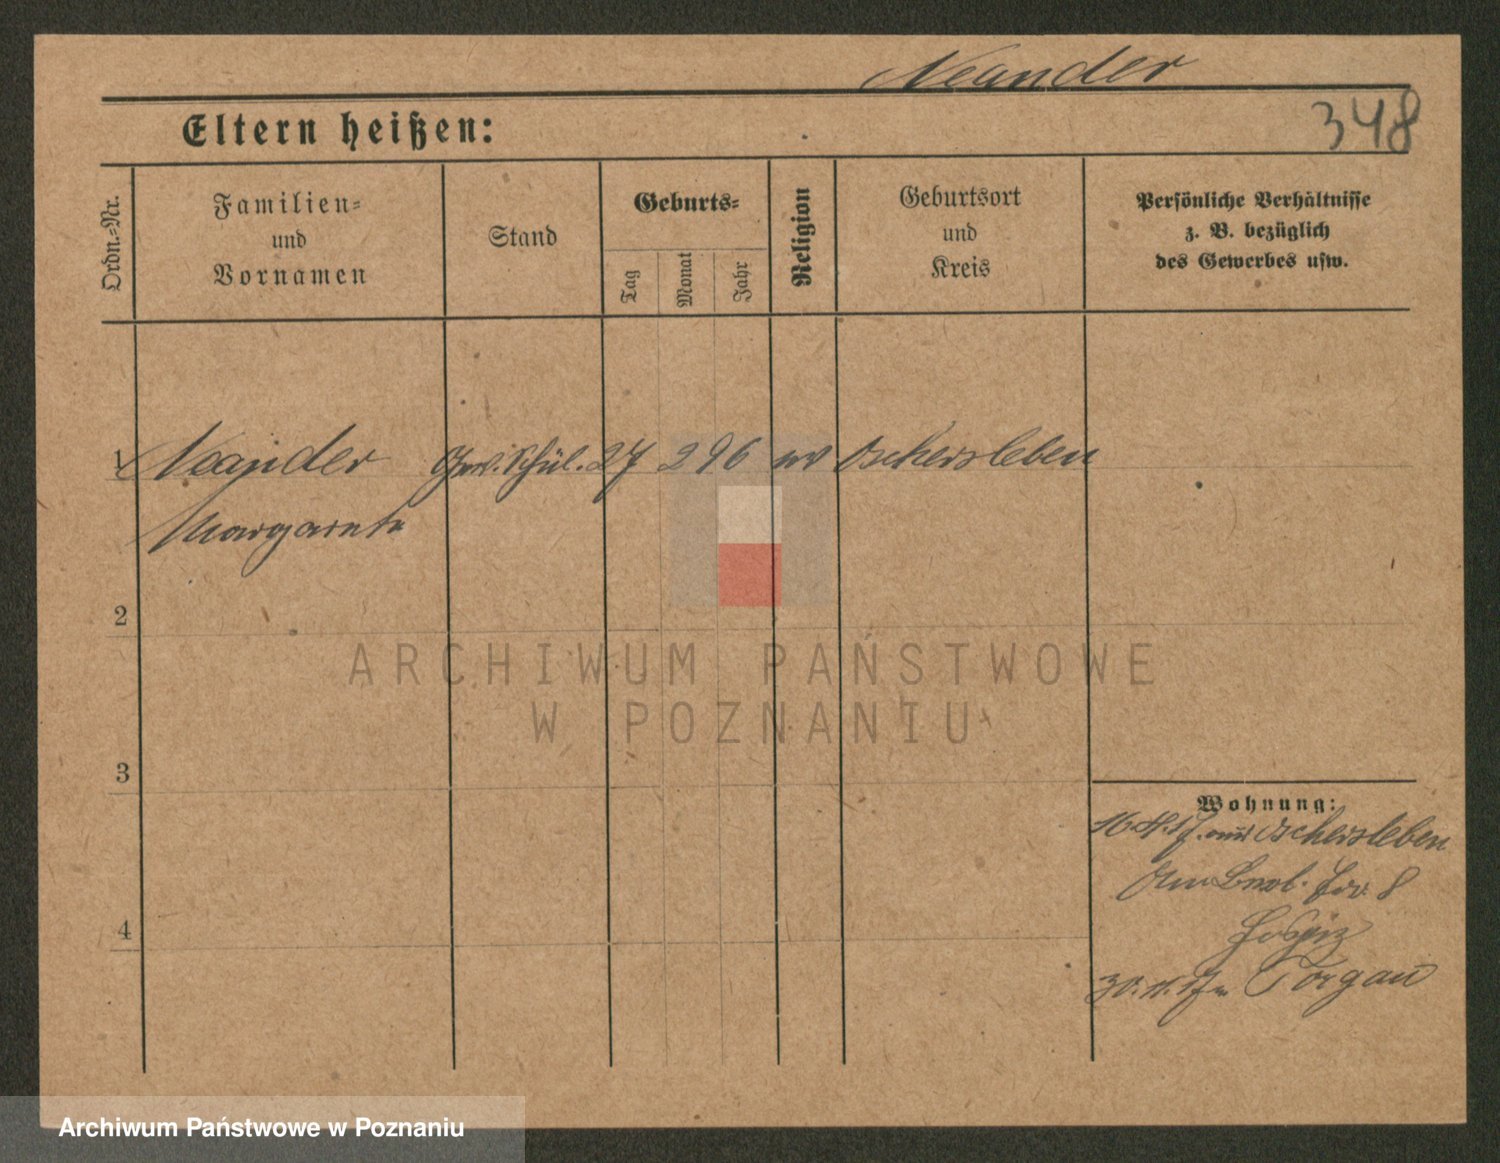 Neander
348
Eltern heißen:
Ordn.-Nr.
Familien-
und
Vornamen
Stand
Geburts-
Tag
Monat
Jahr
Religion
Geburtsort
und
Kreis
Persönliche Verhältnisse
z. B. bezüglich
des Gewerbes usw.
1 Neander Gew. Schül. 27 2 96 ev Oschersleben
Margarete
2
ARCHIWUM PAŃSTWOWE
W POZNANIU
3
Wohnung:
16.4.17. aus Oschersleben
8
4
Hospiz
30.11.17 n. Torgau
Archiwum Państwowe w Poznaniu